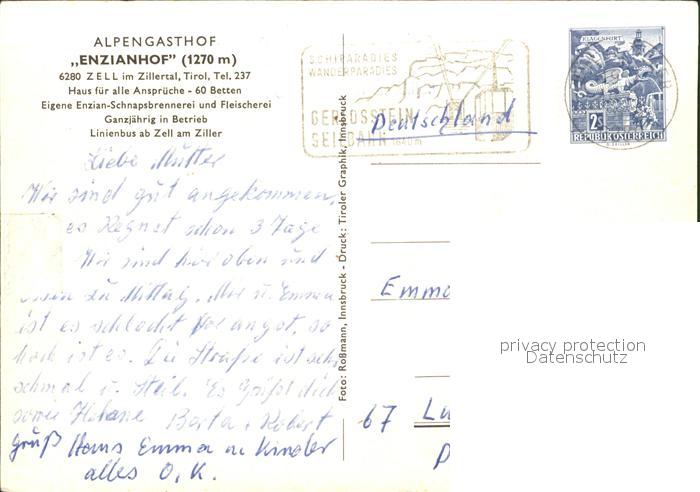 ALPENGASTHOF
„ENZIANHOF" (1270 m)
6280 ZELL im Zillertal, Tirol, Tel. 237
Haus für alle Ansprüche - 60 Betten
Eigene Enzian-Schnapsbrennerei und Fleischerei
Ganzjährig in Betrieb
Linienbus ab Zell am Ziller
Liebe Mutter
Wir sind gut angekommen,
es Regnet schon 3 Tage
Wir sind hir oben und
zu Mittag. u. Emma
ist es schlecht vor angst, so
hoch ist es. Die Straße ist sehr
schmal u. Steil. Es Grüßt dich
sowie Helene Berta, Robert
Gruß Hans Emma u Kinder
alles O.K.
Foto: Roßmann, Innsbruck - Druck: Tiroler Graphik, Innsbruck
SCHIPARADIES
WANDERPARADIES
GERLOSSTEIN
SEILBAHN 1640 m
KLAGENFURT
2S
REPUBLIK ÖSTERREICH
Deutschland
Emma
67 Lu
privacy protection
Datenschutz